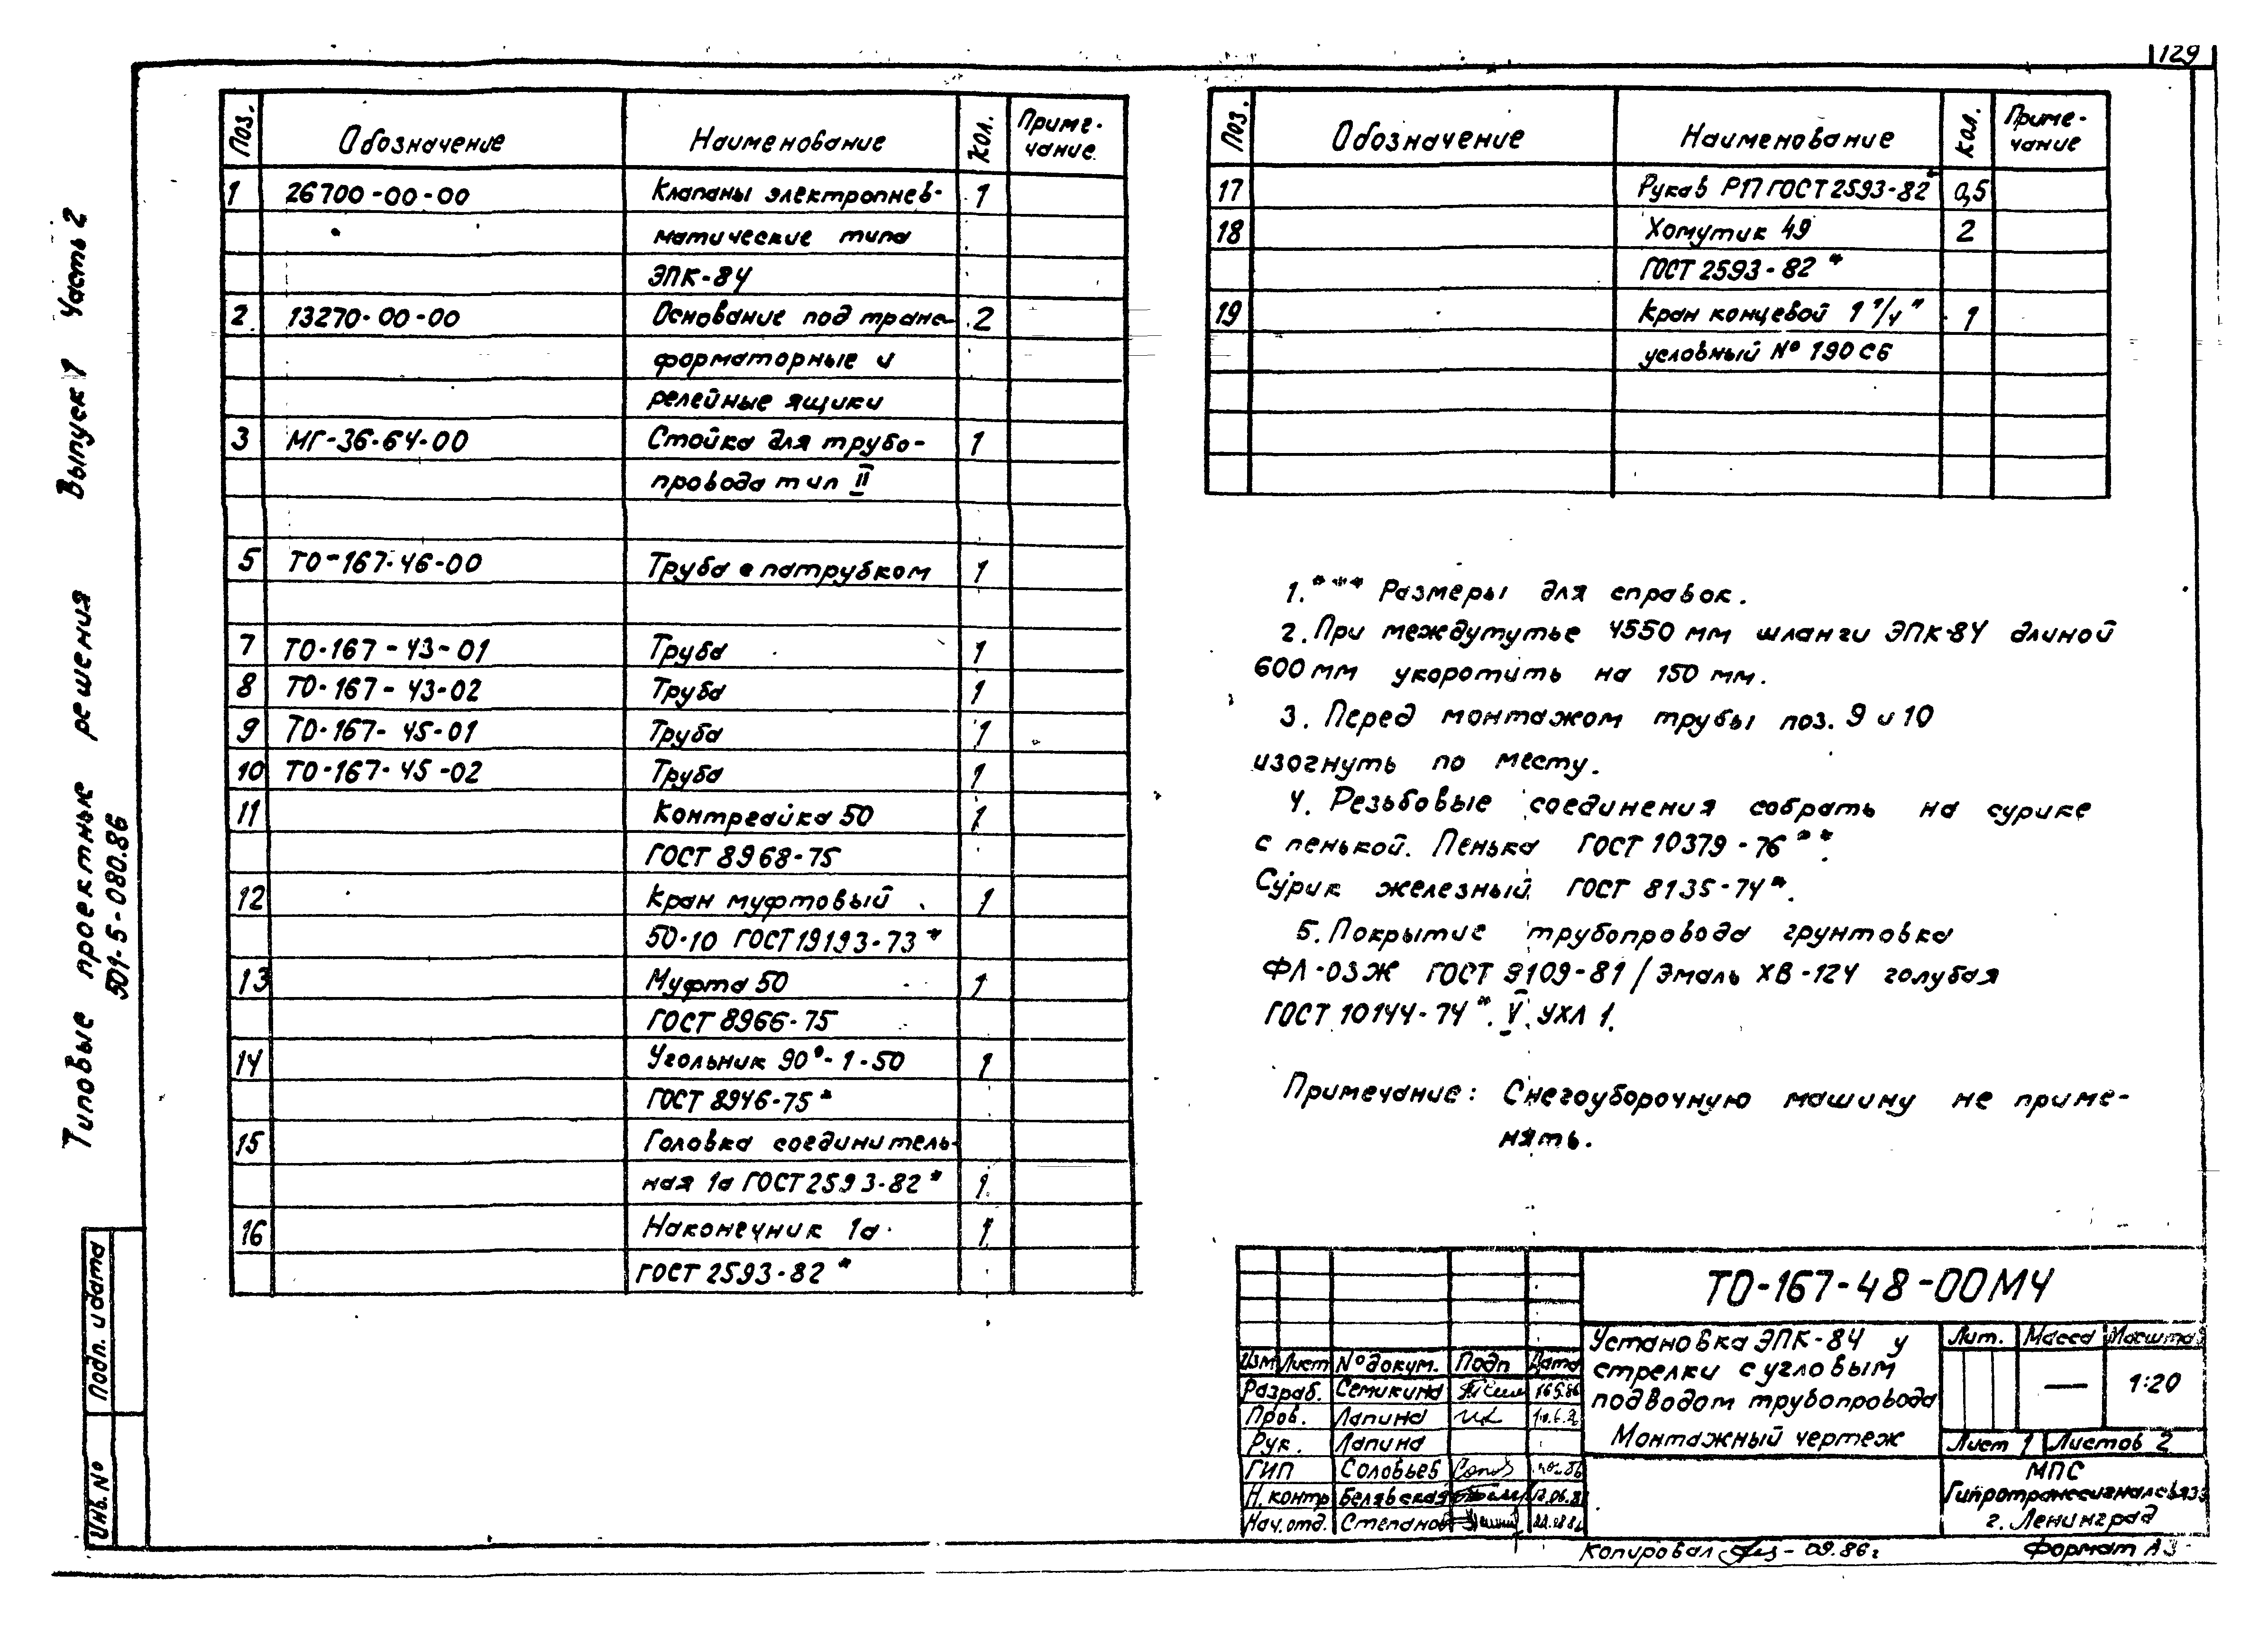 129
Типовые проектные решения Выпуск 1 Часть 2
501-5-080.86
Поз. Обозначение Наименование Кол. Примечание
1 26700-00-00 Клапаны электропнев- 1
матические типа
ЭПК-84
2 13270-00-00 Основание под транс- 2
форматорные и
релейные ящики
3 МГ-36-64-00 Стойка для трубо- 1
провода тип II
5 ТО-167-46-00 Труба с патрубком 1
7 ТО-167-43-01 Труба 1
8 ТО-167-43-02 Труба 1
9 ТО-167-45-01 Труба 1
10 ТО-167-45-02 Труба 1
11 Контргайка 50 1
ГОСТ 8968-75
12 Кран муфтовый 1
50-10 ГОСТ 19193-73*
13 Муфта 50 1
ГОСТ 8966-75
14 Угольник 90°-1-50 1
ГОСТ 8946-75*
15 Головка соединитель-
ная 1а ГОСТ 2593-82* 1
16 Наконечник 1а 1
ГОСТ 2593-82*
Поз. Обозначение Наименование Кол. Приме-
чание
17 Рукав Р17 ГОСТ 2593-82* 0,5
18 Хомутик 49 2
ГОСТ 2593-82*
19 Кран концевой 1 1/4" 1
условный № 190 сб
1.* ** Размеры для справок.
2. При междупутье 4550 мм шланги ЭПК-84 длиной
600 мм укоротить на 150 мм.
3. Перед монтажом трубы поз. 9 и 10
изогнуть по месту.
4. Резьбовые соединения собрать на сурике
с пенькой. Пенька ГОСТ 10379-76**.
Сурик железный ГОСТ 8135-74*.
5. Покрытие трубопровода грунтовка
ФЛ-03Ж ГОСТ 9109-81/Эмаль ХВ-124 голубая
ГОСТ 10144-74*. V. УХЛ 1.
Примечание: Снегоуборочную машину не приме-
нять.
ТО-167-48-00МЧ
Установка ЭПК-84 у
стрелки с угловым
подводом трубопровода
Монтажный чертеж
Лит. Масса Масштаб
— 1:20
Лист 1 Листов 2
МПС
Гипротранссигналсвязь
г. Ленинград
Изм Лист № докум. Подп Дата
Разраб. Семикина
Пров. Лапина
Рук. Лапина
ГИП Соловьев
Н. контр Белявская
Нач. отд. Степанов
Копировал 09.86 г
Формат А3
Подп. и дата
Инв. №